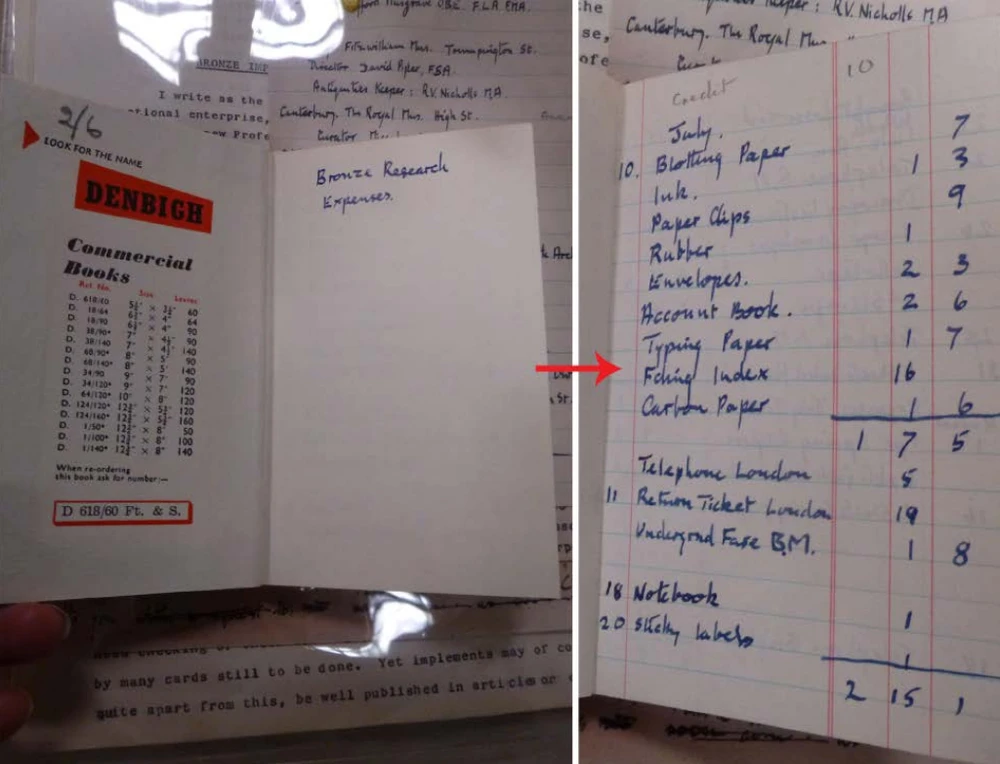 Musgrave OBE. F.L.A. FMA.
Fitzwilliam Mus. Trumpington St.
Director David Piper, FSA.
Antiquities Keeper: R.V. Nicholls MA.
Canterbury. The Royal Mus. High St.
Curator
BRONZE IMP
I write as the
tional enterprise,
ew Profe
2/6
LOOK FOR THE NAME
DENBIGH
Commercial
Books
Ref. No. Size Leaves
D. 618/60 5½" × 3½" 60
D. 18/64 6½" × 4" 64
D. 18/90 6½" × 4" 90
D. 38/90* 7" × 4½" 90
D. 38/140 7" × 4½" 140
D. 68/90* 8" × 5" 90
D. 68/140* 8" × 5" 140
D. 34/90 9" × 7" 90
D. 34/120* 9" × 7" 120
D. 64/120* 10" × 8" 120
D. 124/120* 12½" × 5½" 120
D. 124/160* 12½" × 5½" 160
D. 1/50* 12½" × 8" 50
D. 1/100* 12½" × 8" 100
D. 1/140* 12½" × 8" 140
When re-ordering
this book ask for number:—
D 618/60 Ft. & S.
Bronze Research
Expenses.
by many cards still to be done. Yet implements may of co
quite apart from this, be well published in articles or
Keeper: R.V. Nicholls MA
Canterbury. The Royal Mus.
Credit 10
July.
10. Blotting Paper 7
Ink. 1 3
Paper Clips 9
Rubber 1
Envelopes. 2 3
Account Book. 2 6
Typing Paper 1 7
Filing Index 16
Carbon Paper 1 6
1 7 5
Telephone London 5
11 Return Ticket London 19
Undergrnd Fare B.M. 1 8
18 Notebook 1
20 Sticky labels 1
2 15 1